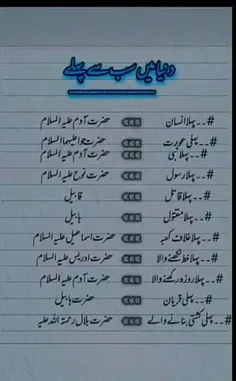 دنیا میں سب سے پہلے
#۔۔پہلا انسان »»» حضرت آدم علیہ السلام
#۔۔پہلی عورت »»» حضرت حوا علیہا السلام
#۔۔پہلا نبی »»» حضرت آدم علیہ السلام
#۔۔پہلا رسول »»» حضرت نوح علیہ السلام
#۔۔پہلا قاتل »»» قابیل
#۔۔پہلا مقتول »»» ہابیل
#۔۔پہلا غلاف کعبہ »»» حضرت اسماعیل علیہ السلام
#۔۔پہلا خط لکھنے والا »»» حضرت ادریس علیہ السلام
#۔۔پہلا روزہ رکھنے والا »»» حضرت آدم علیہ السلام
#۔۔پہلی قربان »»» حضرت ہابیل
#۔۔پہلی کشتی بنانے والے »»» حضرت بلال رحمتہ اللہ علیہ